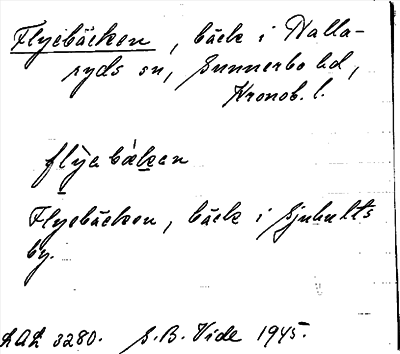 Flyebäcken, bäck i Nalla-
ryds sn, Sunnerbo hd,
Kronob. l.
flỳa bàkan
Flyebäcken, bäck i Sjuhults
by.
LAL 3280. S.B. Vide 1945.